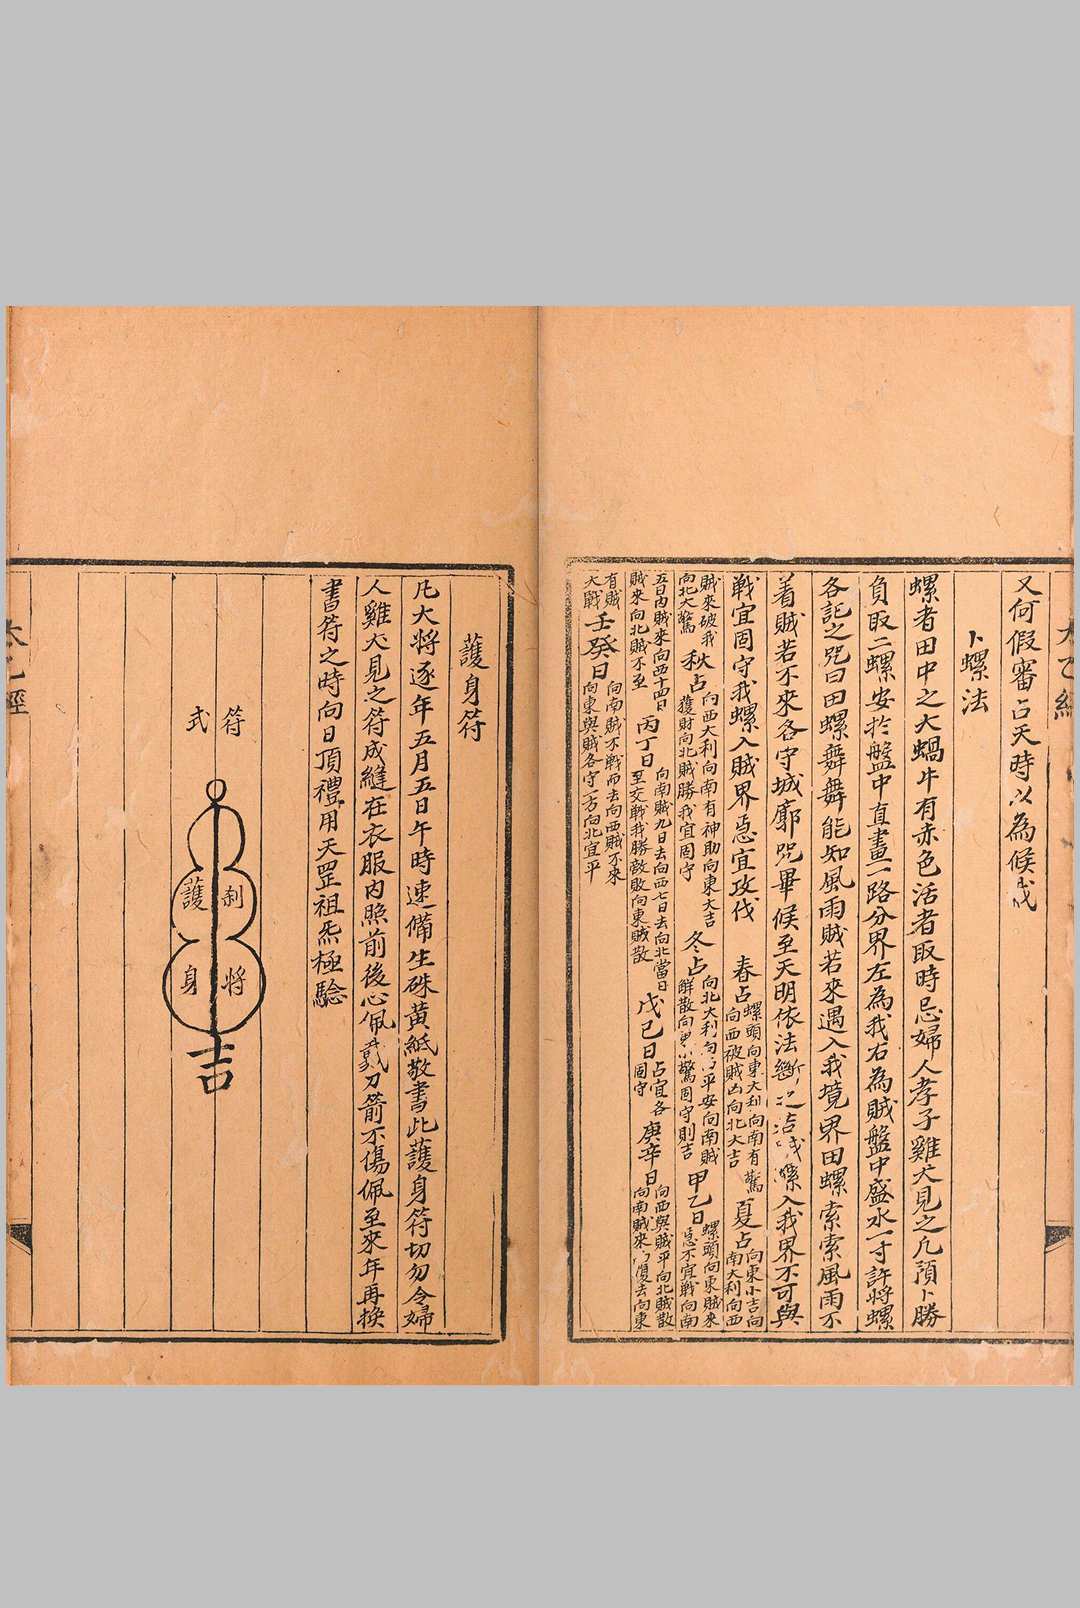 又何假審占天時以為候哉
卜螺法
螺者田中之大蝸牛有赤色活者取時忌婦人孝子雞犬見之凡預卜勝
負取二螺安於盤中直畫一路分界左為我右為賊盤中盛水一寸許將螺
各記之咒曰田螺舞舞能知風雨賊若來遇入我境界田螺索索風雨不
着賊若不來各守城廓咒畢候至天明依法斷之
螺入我界不可與
戰宜固守我螺入賊界急宜攻伐
春占
螺頭向東大利向南有驚
向西被賊凶向北大吉
夏占
向東小吉向
南大利向西
賊來破我
向北大驚
秋占
向西大利向南有神助向東大吉
獲財向北賊勝我宜固守
冬占
向北大利向
平安向南賊
解散向
驚固守則吉
甲乙日
螺頭向東賊來
急不宜戰向南
五日內賊來向西十四日
賊來向北賊不至
丙丁日
向南賊九日去向西七日去向北當日
至交戰我勝敵敗向東賊散
戊己日
占宜各
固守
庚辛日
向西與賊平向北賊散
向南賊來
復去向東
有賊
大戰
壬癸日
向南賊不戰而去向西賊不來
向東與賊各守一方向北宜平
護身符
凡大將逐年五月五日午時速備生硃黃紙敬書此護身符切勿令婦
人雞犬見之符成縫在衣服內照前後心佩戴刀箭不傷佩至來年再換
書符之時向日頂禮用天罡祖炁極驗
符
式
制
將
護
身
吉
太乙經